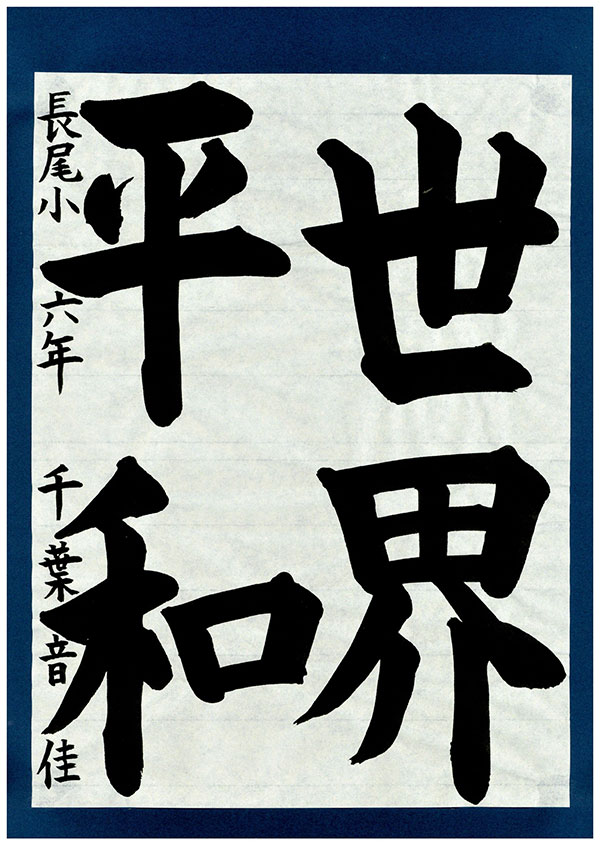 世界
平和
長尾小 六年 千葉音佳